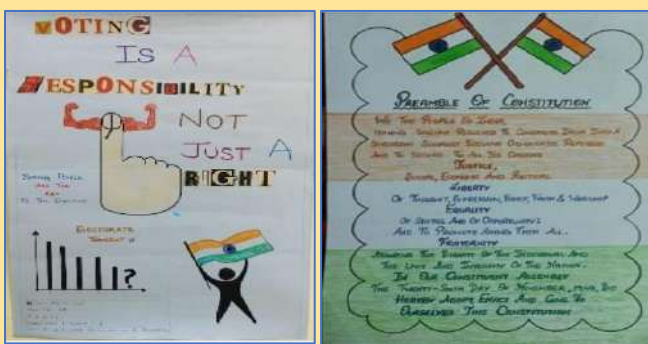 VOTING
IS A
RESPONSIBILITY
NOT
JUST A
RIGHT
YOUNG PEOPLE
ARE THE
KEY
ELECTORATE
?
PREAMBLE OF CONSTITUTION
WE THE PEOPLE OF INDIA
HAVING SOLEMNLY RESOLVED TO CONSTITUTE INDIA INTO A
SOVEREIGN SOCIALIST SECULAR DEMOCRATIC REPUBLIC
AND TO SECURE TO ALL ITS CITIZENS
JUSTICE,
SOCIAL, ECONOMIC AND POLITICAL
LIBERTY
OF THOUGHT, EXPRESSION, BELIEF, FAITH & WORSHIP
EQUALITY
OF STATUS AND OF OPPORTUNITY
AND TO PROMOTE AMONG THEM ALL.
FRATERNITY
ASSURING THE DIGNITY OF THE INDIVIDUAL AND
THE UNITY AND INTEGRITY OF THE NATION.
IN OUR CONSTITUENT ASSEMBLY
THE TWENTY-SIXTH DAY OF NOVEMBER, 1949, DO
HEREBY ADOPT, ENACT AND GIVE TO
OURSELVES THIS CONSTITUTION